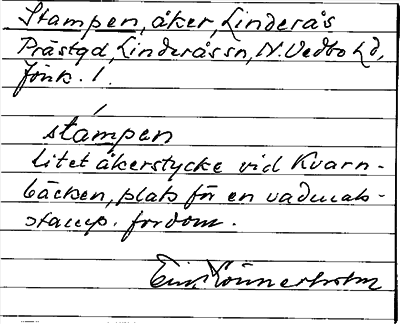 Stampen, åker, Linderås
Prästgd, Linderås sn, N. Vedbo hd,
Jönk. l.
stámpen
litet åkerstycke vid Kvarn-
bäcken, plats för en vadmals-
stamp. fordom.